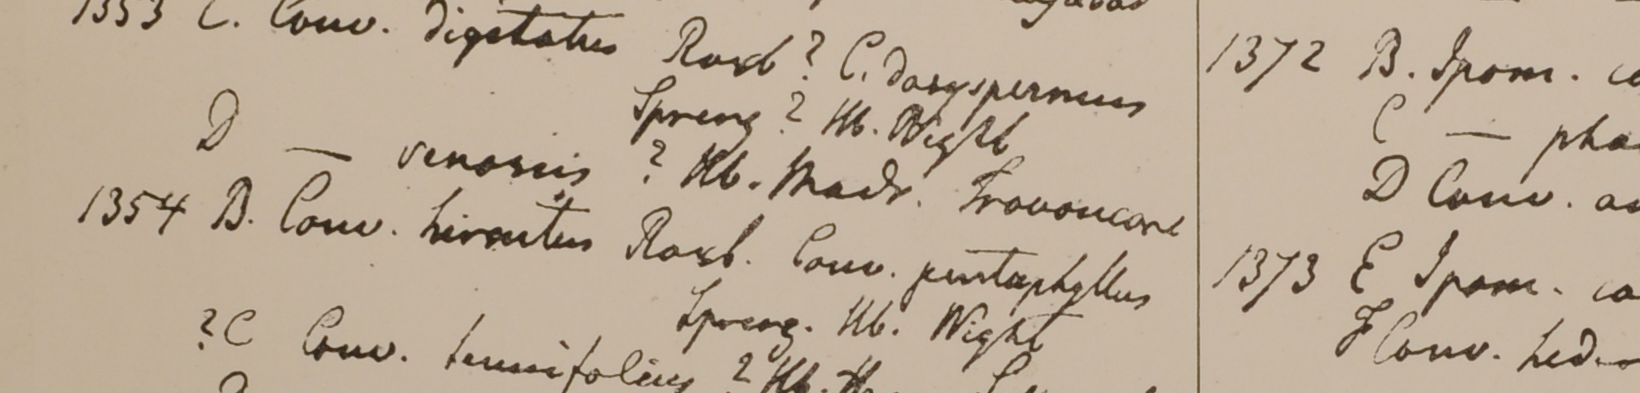 1353 C. Conv. digitatus Roxb? C. dasyspermus
Spreng? Hb. Wight
D — venosus? Hb. Madr. Travoncore
1354 B. Conv. hirsutus Roxb. Conv. pentaphyllus
Spreng. Hb. Wight
?C Conv. tenuifolius? Hb.
1372 B. Ipom.
C — pha
D Conv.
1373 E Ipom.
F Conv. hed